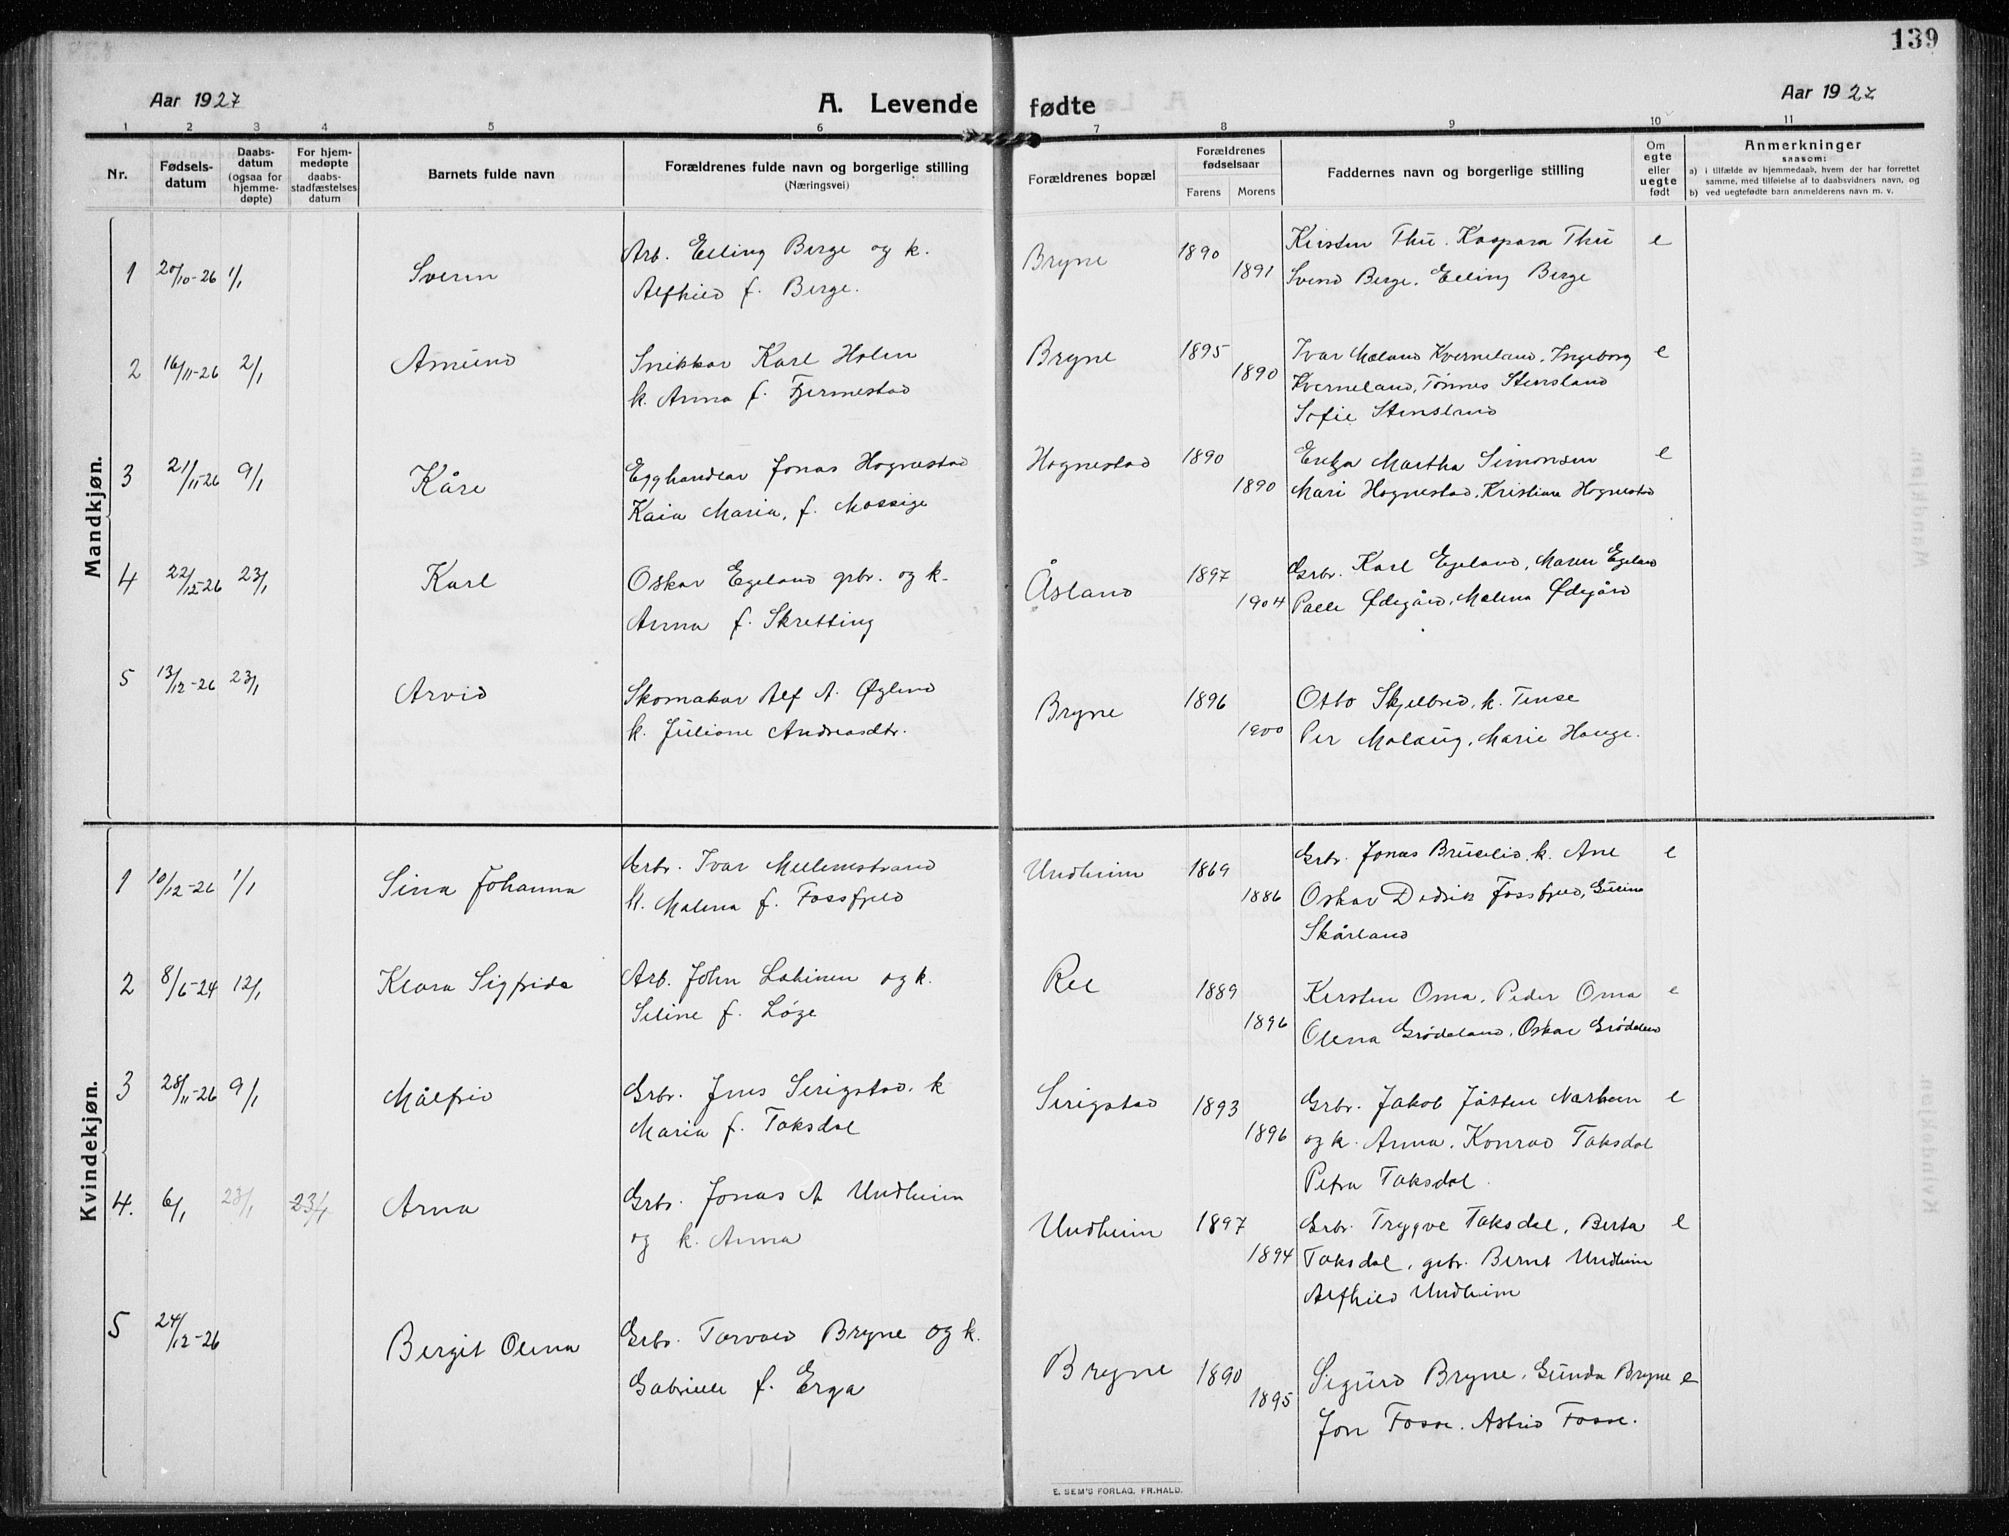 139
Aar 1927
A. Levende fødte
Aar 1927
1 2 3 4 5 6 7 8 9 10 11
Nr.
Fødsels-
datum
Daabs-
datum
(ogsaa for
hjemme-
døpte)
For hjem-
medøpte
daabs-
stadfæstelses
datum
Barnets fulde navn
Forældrenes fulde navn og borgerlige stilling
(Næringsvei)
Forældrenes bopæl
Forældrenes
fødselsaar
Farens Morens
Faddernes navn og borgerlige stilling
Om
egte
eller
uegte
født
Anmerkninger
saasom:
a) i tilfælde av hjemmedaab, hvem der har forrettet
samme, med tilføielse af to daabsvidners navn, og
b) ved uegtefødte barn anmelderens navn m. v.
Mandkjøn.
1 20/10-26 1/1 Sverin
Arb. Elling Berge og k.
Alfhild f. Berge.
Bryne 1890 1891
Kirsten Thu. Kaspara Thu e
Svend Berge. Elling Berge
2 16/11-26 2/1 Amund
Snikkar Karl Holen
k. Anna f. Fjermestad
Bryne 1895 1890
Ivar Mæland Kverneland, Ingeborg e
Kverneland, Tønnes Stensland
Sofie
3 21/11-26 9/1 Kåre
Egghandlar Jonas Hognestad
Kaia Maria, f. Mossige
Hognestad 1890 1890
Martha Simonsen e
Mari Hognestad, Kristiane Hognestad
4 22/12-26 23/1 Karl
Oskar Egeland grbr. og k.
Anna f. Skretting
Åsland 1897 1904
Grbr. Karl Egeland, Maren Egeland
Palle Ødegård, Malena Ødegård
5 13/12-26 23/1 Arvid
Skomakar Alf A. Øglend
k. Juliane Andreasdtr.
Bryne 1896 1900
Otto Skjelbred, k. Tense
Per Malaug, Marie Hauge.
Kvindekjøn.
1 10/12-26 1/1 Sina Johanna
Grbr. Ivar Mellemstrand
k. Malena f. Fossfjeld
Undheim 1869 1886
Grbr. Jonas Bruelid, k. Ane e
Oskar Didrik Fossfjeld, Guline
Skårland
2 8/6-24 12/1 Klara Sigfrida
Arb. John Lahinen og k.
Seline f. Løge
Ree 1889 1896
Kirsten Oma, Peder Oma e
Olena Grødeland, Oskar Grødeland
3 28/11-26 9/1 Målfrid
Grbr. Jens Serigstad, k
Maria f. Taksdal
Serigstad 1893 1896
Grbr. Jakob Jåtten Nærheim e
og k. Anna, Konrad Taksdal
Petra Taksdal.
4. 6/1 23/1 23/1 Arna
Grbr. Jonas A Undheim
og k. Anna
Undheim 1897 1894
Grbr. Trygve Taksdal, Berta e
Taksdal, grbr. Bernt Undheim
Alfhild Undheim
5 24/12-26 Bergit Olena
Grbr. Torvald Bryne og k.
Gabriele f. Erga
Bryne 1890 1895
Sigurd Bryne, Gunda Bryne e
Jon Fosse. Astrid Fosse.
E. SEM'S FORLAG, FR.HALD.